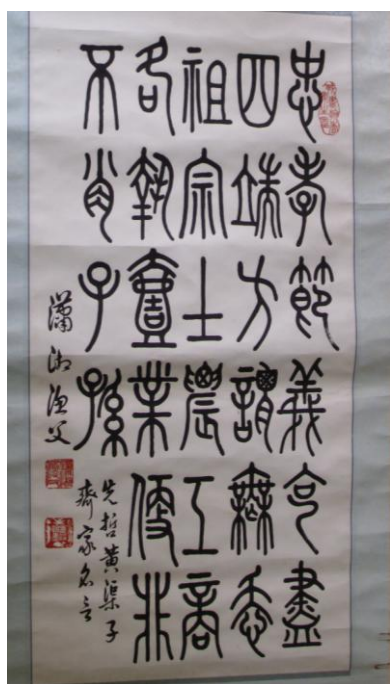 忠孝節義盡
四端方謂無忝
祖宗士農工商
各執壹業便非
不肖子孫
先哲黃渠子
齊家名言
瀟湘漁父